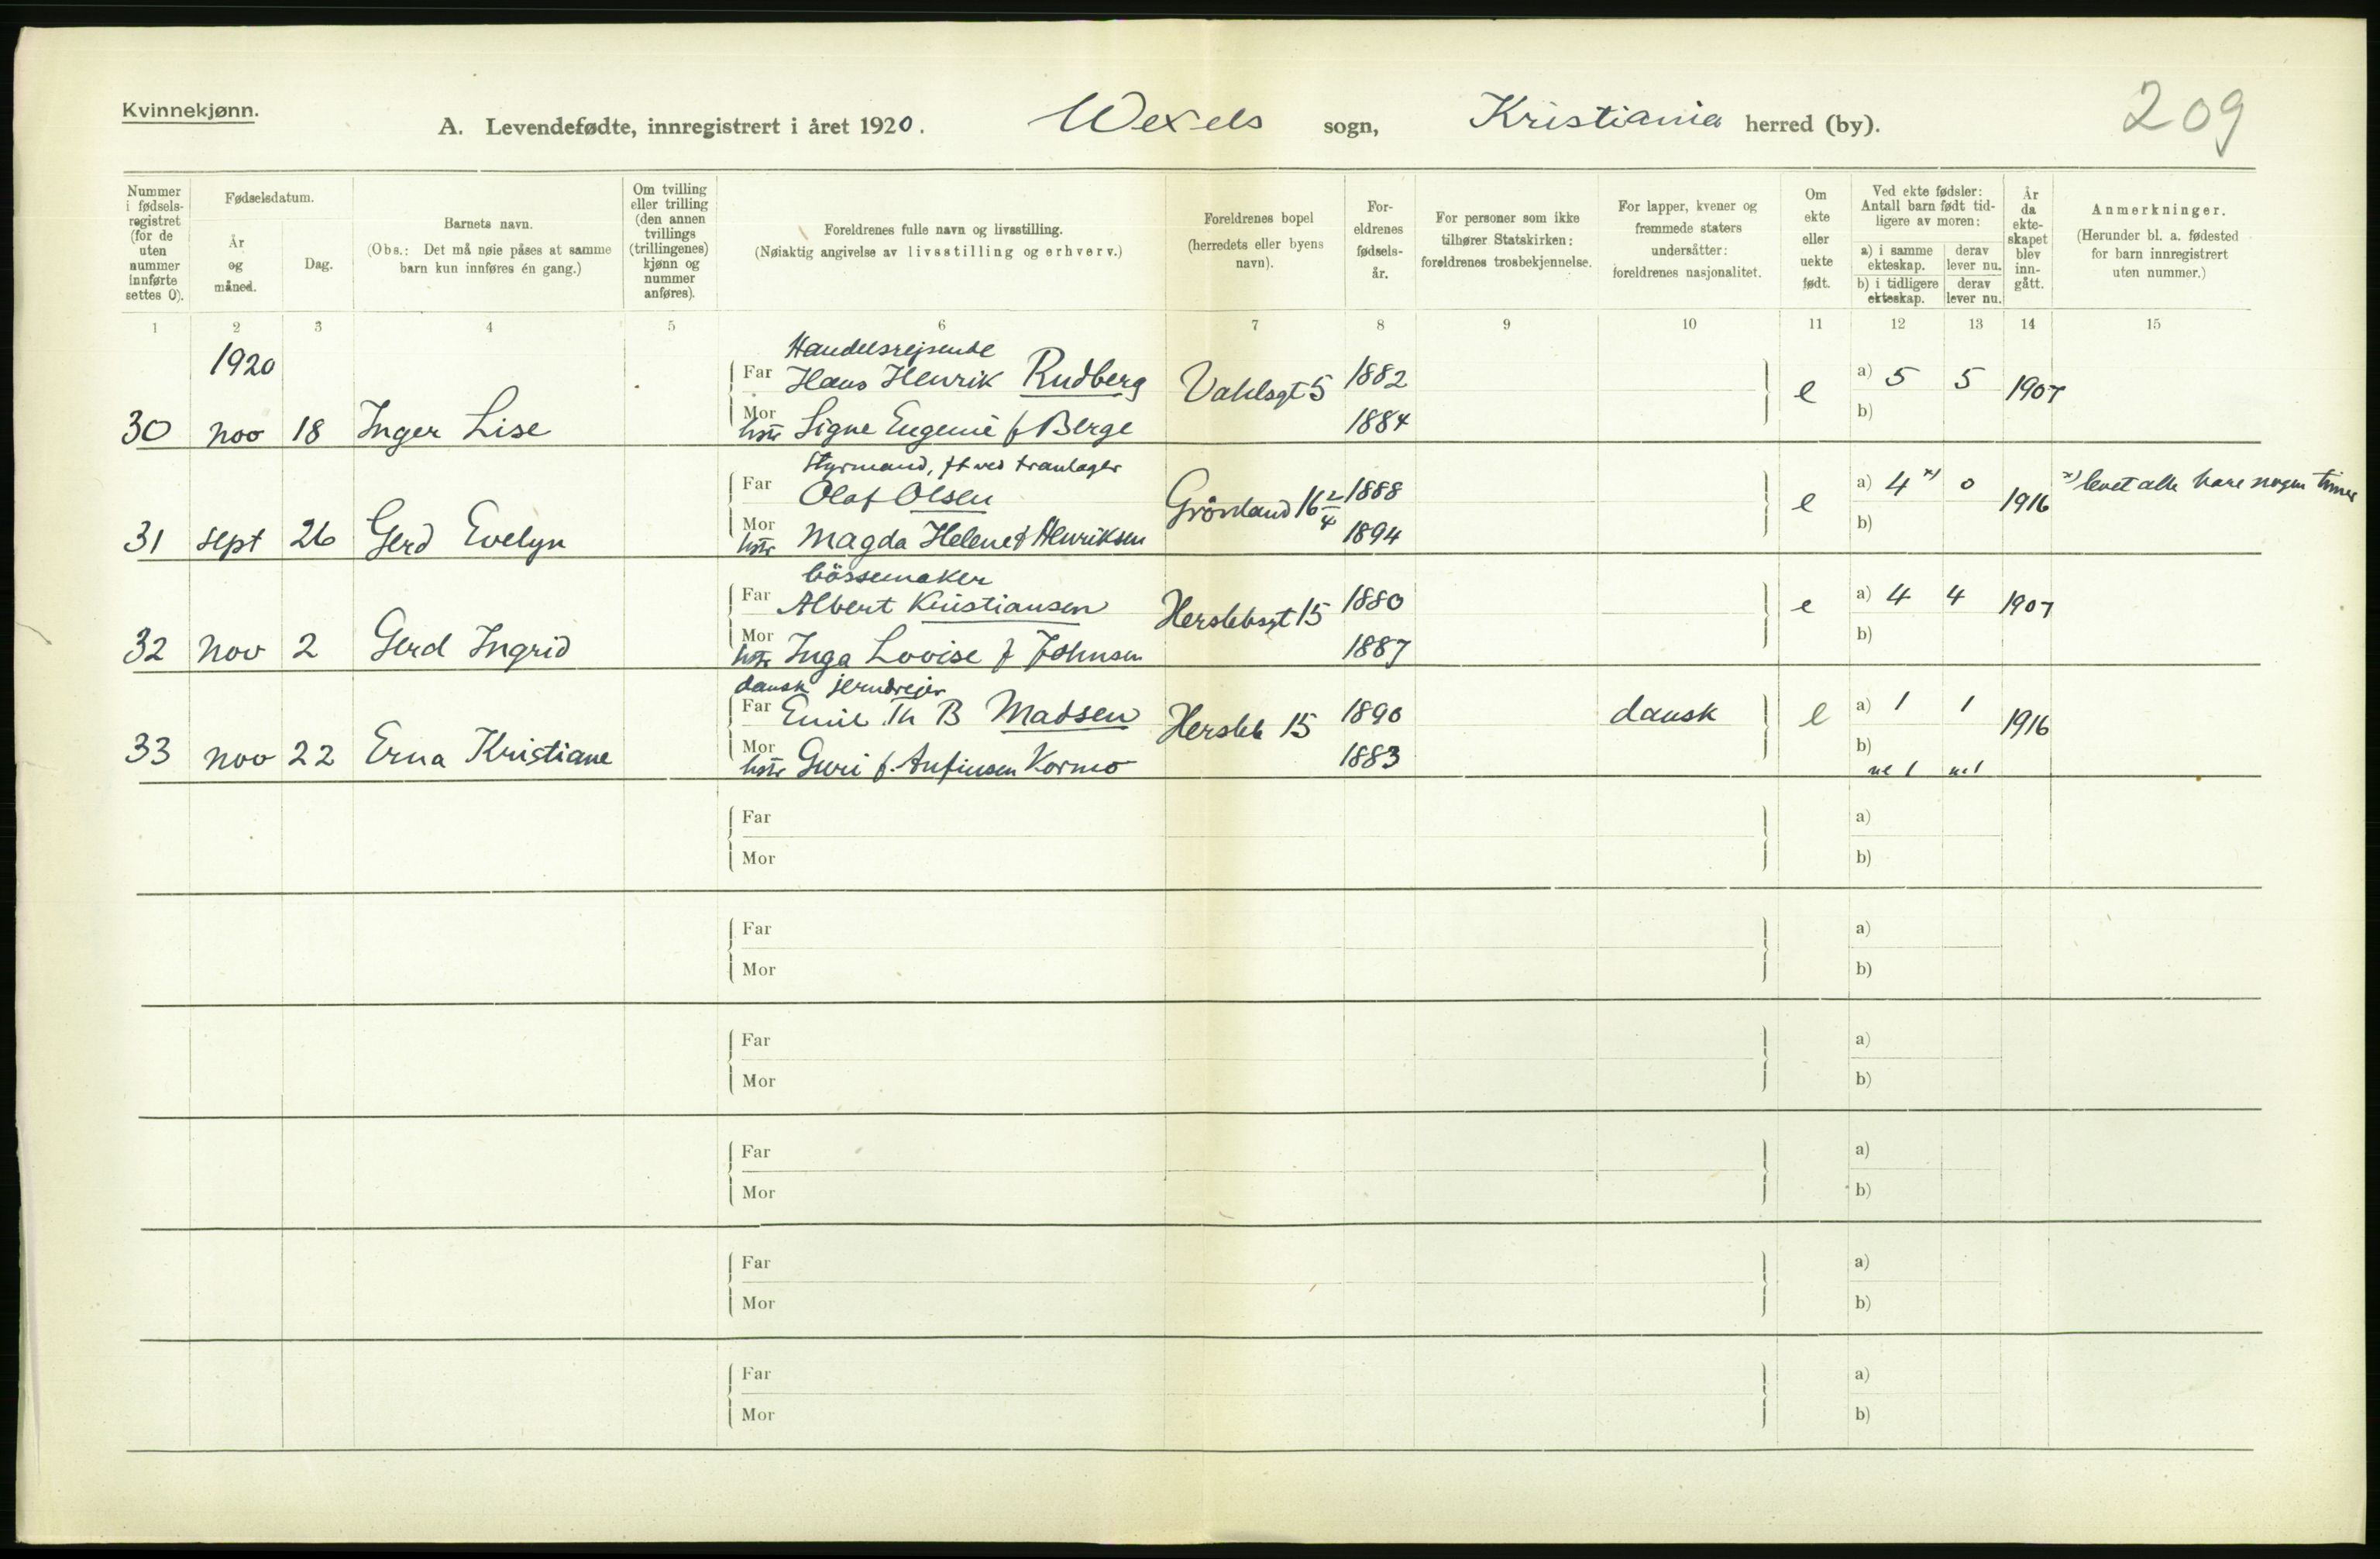 Kvinnekjønn.
A. Levendefødte, innregistrert i året 1920. Wexels sogn, Kristiania herred (by). 209
Nummer i fødsels-registret (for de uten nummer innførte settes 0).
Fødselsdatum.
År og måned.
Dag.
Barnets navn.
(Obs.: Det må nøie påses at samme barn kun innføres én gang.)
Om tvilling eller trilling (den annen tvillings (trillingenes) kjønn og nummer anføres).
Foreldrenes fulle navn og livsstilling.
(Nøiaktig angivelse av livsstilling og erhverv.)
Foreldrenes bopel (herredets eller byens navn).
For-eldrenes fødsels-år.
For personer som ikke tilhører Statskirken: foreldrenes trosbekjennelse.
For lapper, kvener og fremmede staters undersåtter: foreldrenes nasjonalitet.
Om ekte eller uekte født.
Ved ekte fødsler: Antall barn født tid-ligere av moren:
a) i samme ekteskap.
derav lever nu.
b) i tidligere ekteskap.
derav lever nu.
År da ekte-skapet blev inn-gått.
Anmerkninger.
(Herunder bl. a. fødested for barn innregistrert uten nummer.)
1 2 3 4 5 6 7 8 9 10 11 12 13 14 15
1920
Handelsrejsende
Far Hans Henrik Rudberg Vahlsgt 5 1882 e a) 5 5 1907
30 nov 18 Inger Lise Mor hstr Signe Eugenie f Berge 1884 b)
Styrmand, ft ved tranlager
Far Olaf Olsen Grönland 16 2/4 1888 e a) 4 x) 0 1916 x) levet alle bare nogen timer
31 sept 26 Gerd Evelyn Mor hstr Magda Helene f Henriksen 1894 b)
bössemaker
Far Albert Kristiansen Herslebsgt 15 1880 e a) 4 4 1907
32 nov 2 Gerd Ingrid Mor hstr Inga Lovise f Johnsen 1887 b)
dansk jerndrejer
Far Emil Th B Madsen Hersleb 15 1890 dansk e a) 1 1 1916
33 nov 22 Erna Kristiane Mor hstr Guri f. Anfinsen Kormo 1883 b)
ue 1 ue 1
Far a)
Mor b)
Far a)
Mor b)
Far a)
Mor b)
Far a)
Mor b)
Far a)
Mor b)
Far a)
Mor b)